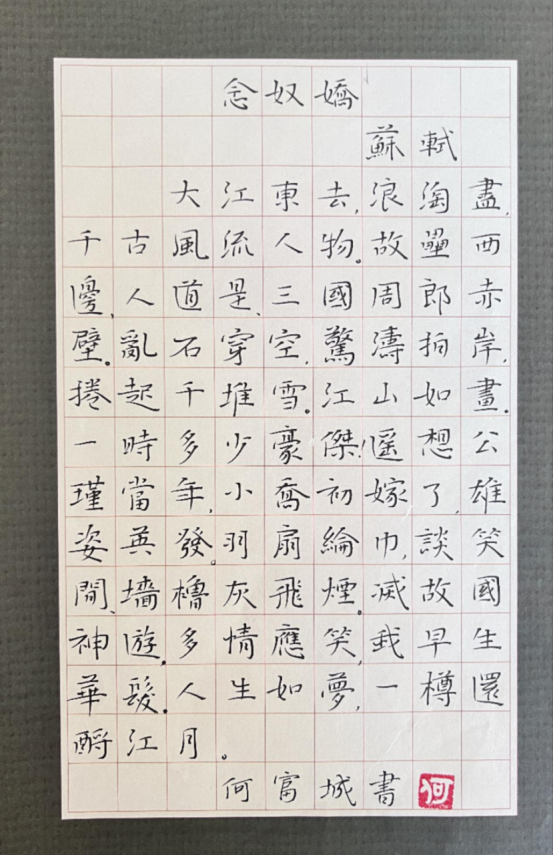 念奴嬌
蘇軾
大江東去,浪淘盡,
千古風流人物。故壘西
邊、人道是、三國周郎赤
壁。亂石穿空,驚濤拍岸,
捲起千堆雪。江山如畫。
一時多少豪傑!遙想公
瑾當年,小喬初嫁了,雄
姿英發。羽扇綸巾,談笑
間、墻櫓灰飛煙滅。故國
神遊,多情應笑,我早生
華髮。人生如夢,一樽還
酹江月。
何富城書 何